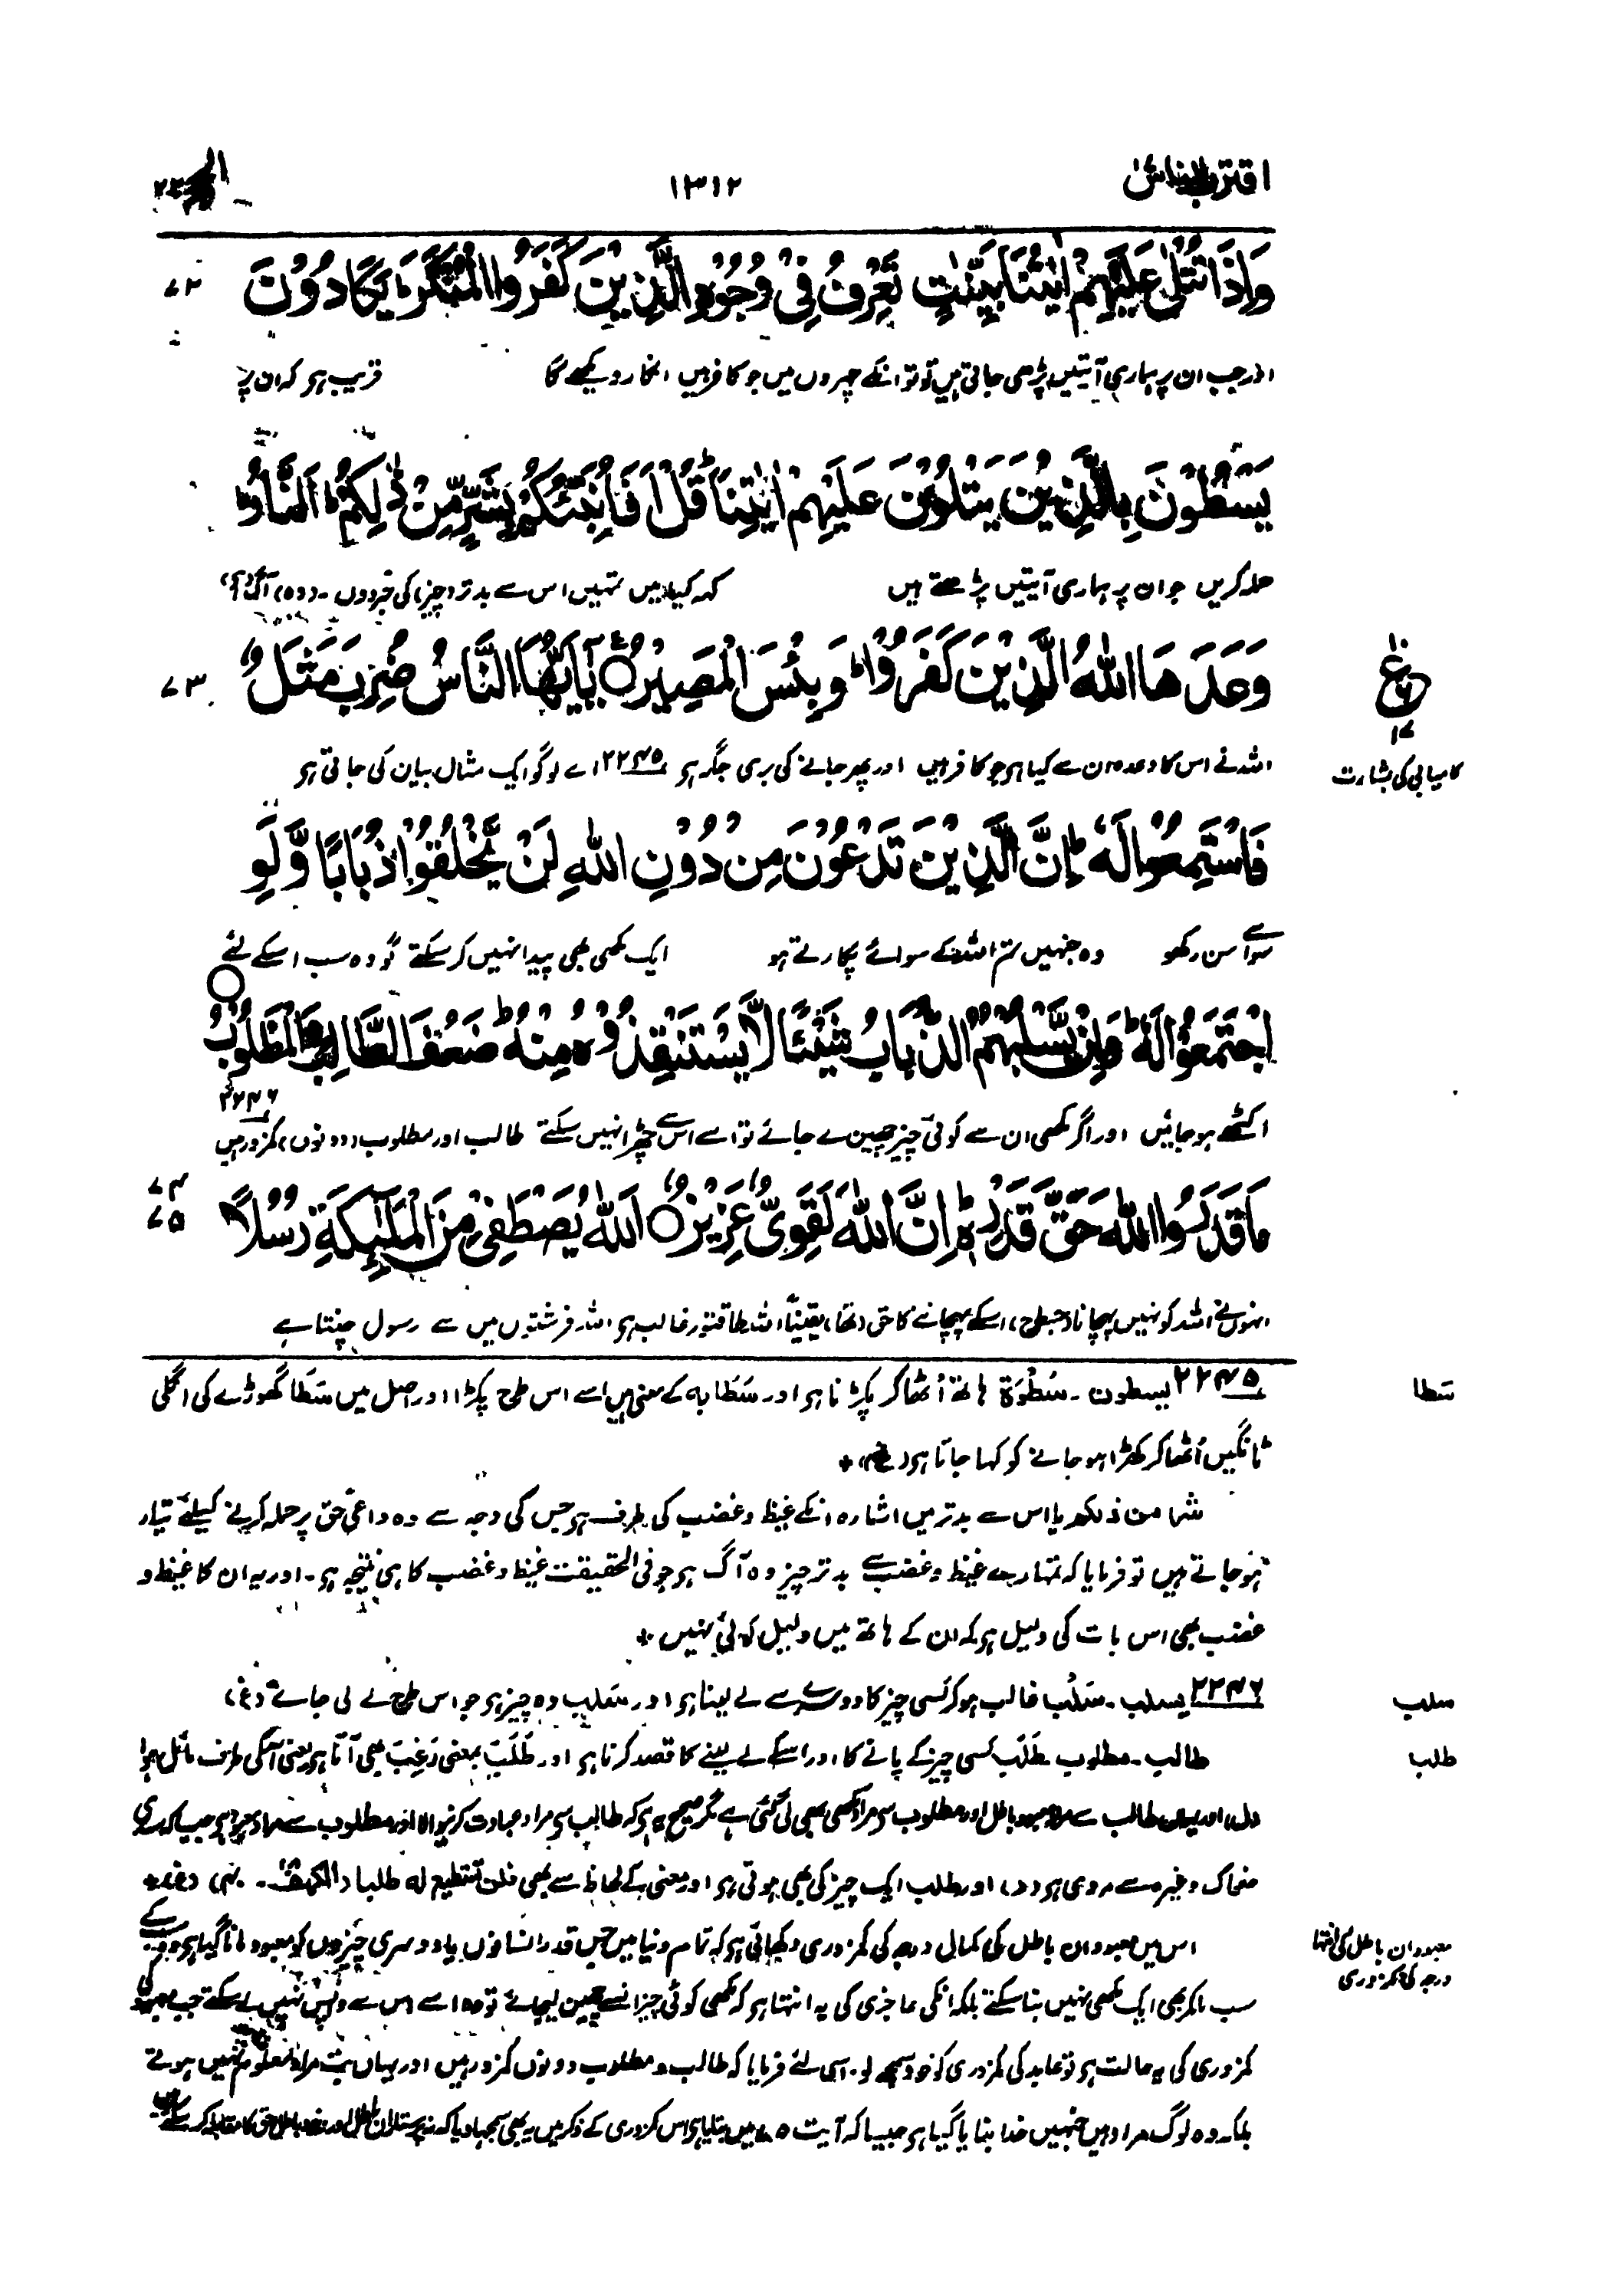 اقترب للناس ۱۳۱۲ الحج ۲۲
وَاِذَا تُتْلٰى عَلَيْهِمْ اٰيٰتُنَا بَيِّنٰتٍ تَعْرِفُ فِيْ وُجُوْهِ الَّذِيْنَ كَفَرُوا الْمُنْكَرَ ؕ يَكَادُوْنَ ۷۲
اور جب ان پر ہماری آیتیں پڑھی جاتی ہیں تو تو انکے چہروں میں جو کافر ہیں انکار دیکھے گا قریب ہے کہ ان پر
يَسْطُوْنَ بِالَّذِيْنَ يَتْلُوْنَ عَلَيْهِمْ اٰيٰتِنَا ؕ قُلْ اَفَاُنَبِّئُكُمْ بِشَرٍّ مِّنْ ذٰلِكُمْ ؕ اَلنَّارُ ؕ
حملہ کریں جو ان پر ہماری آیتیں پڑھتے ہیں کہہ کیا میں تمہیں اس سے بدتر (چیز) کی خبر دوں۔ (وہ) آگ (ہے)
وَعَدَهَا اللّٰهُ الَّذِيْنَ كَفَرُوْا ؕ وَبِئْسَ الْمَصِيْرُ ۠ يٰۤاَيُّهَا النَّاسُ ضُرِبَ مَثَلٌ ۷۳
ع
۱۷
اللہ نے اس کا وعدہ ان سے کیا ہے جو کافر ہیں اور پھر جانے کی بری جگہ ہے ۲۲۴۵ اے لوگو ایک مثال بیان کی جاتی ہے
کامیابی کی بشارت
فَاسْتَمِعُوْا لَهٗ ؕ اِنَّ الَّذِيْنَ تَدْعُوْنَ مِنْ دُوْنِ اللّٰهِ لَنْ يَّخْلُقُوْا ذُبَابًا وَّلَوِ
سو اسے سن رکھو وہ جنہیں تم اللہ کے سوائے پکارتے ہو ایک مکھی بھی پیدا نہیں کر سکتے گو وہ سب اسکے لئے
اجْتَمَعُوْا لَهٗ ؕ وَاِنْ يَّسْلُبْهُمُ الذُّبَابُ شَيْئًا لَّا يَسْتَنْقِذُوْهُ مِنْهُ ؕ ضَعُفَ الطَّالِبُ وَالْمَطْلُوْبُ
۲۲۴۶
اکٹھے ہو جائیں اور اگر مکھی ان سے کوئی چیز چھین لے جائے تو اسے اس سے چھڑا نہیں سکتے طالب اور مطلوب (دونوں) کمزور ہیں
مَا قَدَرُوا اللّٰهَ حَقَّ قَدْرِهٖ ؕ اِنَّ اللّٰهَ لَقَوِيٌّ عَزِيْزٌ اَللّٰهُ يَصْطَفِيْ مِنَ الْمَلٰٓئِكَةِ رُسُلًا ۷۴ ۷۵
انہوں نے اللہ کو نہیں پہچانا (جس طرح) اسکے پہچاننے کا حق (تھا) یقیناً اللہ طاقتور غالب ہے اللہ فرشتوں میں سے رسول چنتا ہے
سَطا
۲۲۴۵ یسطون۔ سَطْوَة ہاتھ اُٹھا کر پکڑنا ہے اور سَطَا بہ کے معنی ہیں اسے اس طرح پکڑا اور اصل میں سَطَا گھوڑے کی اگلی
ٹانگیں اُٹھا کر کھڑا ہو جانے کو کہا جاتا ہے (غ) +
شر من ذلکم یا اس سے بدتر میں اشارہ انکے غیظ و غضب کی طرف ہے جس کی وجہ سے وہ داعی حق پر حملہ کرنے کیلئے تیار
ہو جاتے ہیں تو فرمایا کہ تمہارے غیظ و غضب سے بدتر چیز وہ آگ ہے جو فی الحقیقت غیظ و غضب کا ہی نتیجہ ہے۔ اور یہ ان کا غیظ و
غضب بھی اس بات کی دلیل ہے کہ ان کے ہاتھ میں دلیل کوئی نہیں +
سلب
۲۲۴۶ یسلب۔ سَلْب غالب ہو کر کسی چیز کا دوسرے سے لے لینا ہے اور سَلَب وہ چیز ہے جو اس طرح لے لی جائے (غ)
طلب
طالب۔ مطلوب طَلَب کسی چیز کے پانے کا اور اسکے لے لینے کا قصد کرنا ہے اور طَلَبَ بمعنی رَغِبَ بھی آتا ہے یعنی اسکی طرف مائل ہوا
(ل) اور یہاں طالب سے مراد معبود باطل اور مطلوب سے مراد مکھی بھی لی گئی ہے مگر صحیح یہ ہے کہ طالب سے مراد عبادت کرنیوالا اور مطلوب سے مراد جیسا کہ سدی
ضحاک وغیرہ سے مروی ہے (د) اور طلب ایک چیز کی بھی ہوتی ہے اور معنی کے لحاظ سے بھی فلن تستطیع له طلبا (الکہف۔ ) (غ) +
معبودان باطل کی انتہا درجہ کی کمزوری
اس میں معبودان باطل کی کمال درجہ کی کمزوری دکھائی ہے کہ تمام دنیا میں جس قدر انسانوں یا دوسری چیزوں کو معبود مانا گیا ہے وہ سب کے
سب ملکر بھی ایک مکھی نہیں بنا سکتے بلکہ انکی عاجزی کی یہ انتہا ہے کہ مکھی کوئی چیز ان سے چھین لیجائے تو وہ اسے اس سے واپس نہیں لے سکتے جب معبود کی
کمزوری کی یہ حالت ہے تو عابد کی کمزوری کو خود سمجھ لو۔ اسی لئے فرمایا کہ طالب و مطلوب دونوں کمزور ہیں اور یہاں بت مراد معلوم نہیں ہوتے
بلکہ وہ لوگ مراد ہیں جنہیں خدا بنایا گیا ہے جیسا کہ آیت ۷۵ میں بتایا ہے اس کمزوری کے ذکر میں یہ بھی سمجھا دیا کہ نہ پرستاران باطل اور نہ خود باطل حق کا مقابلہ کر سکتے